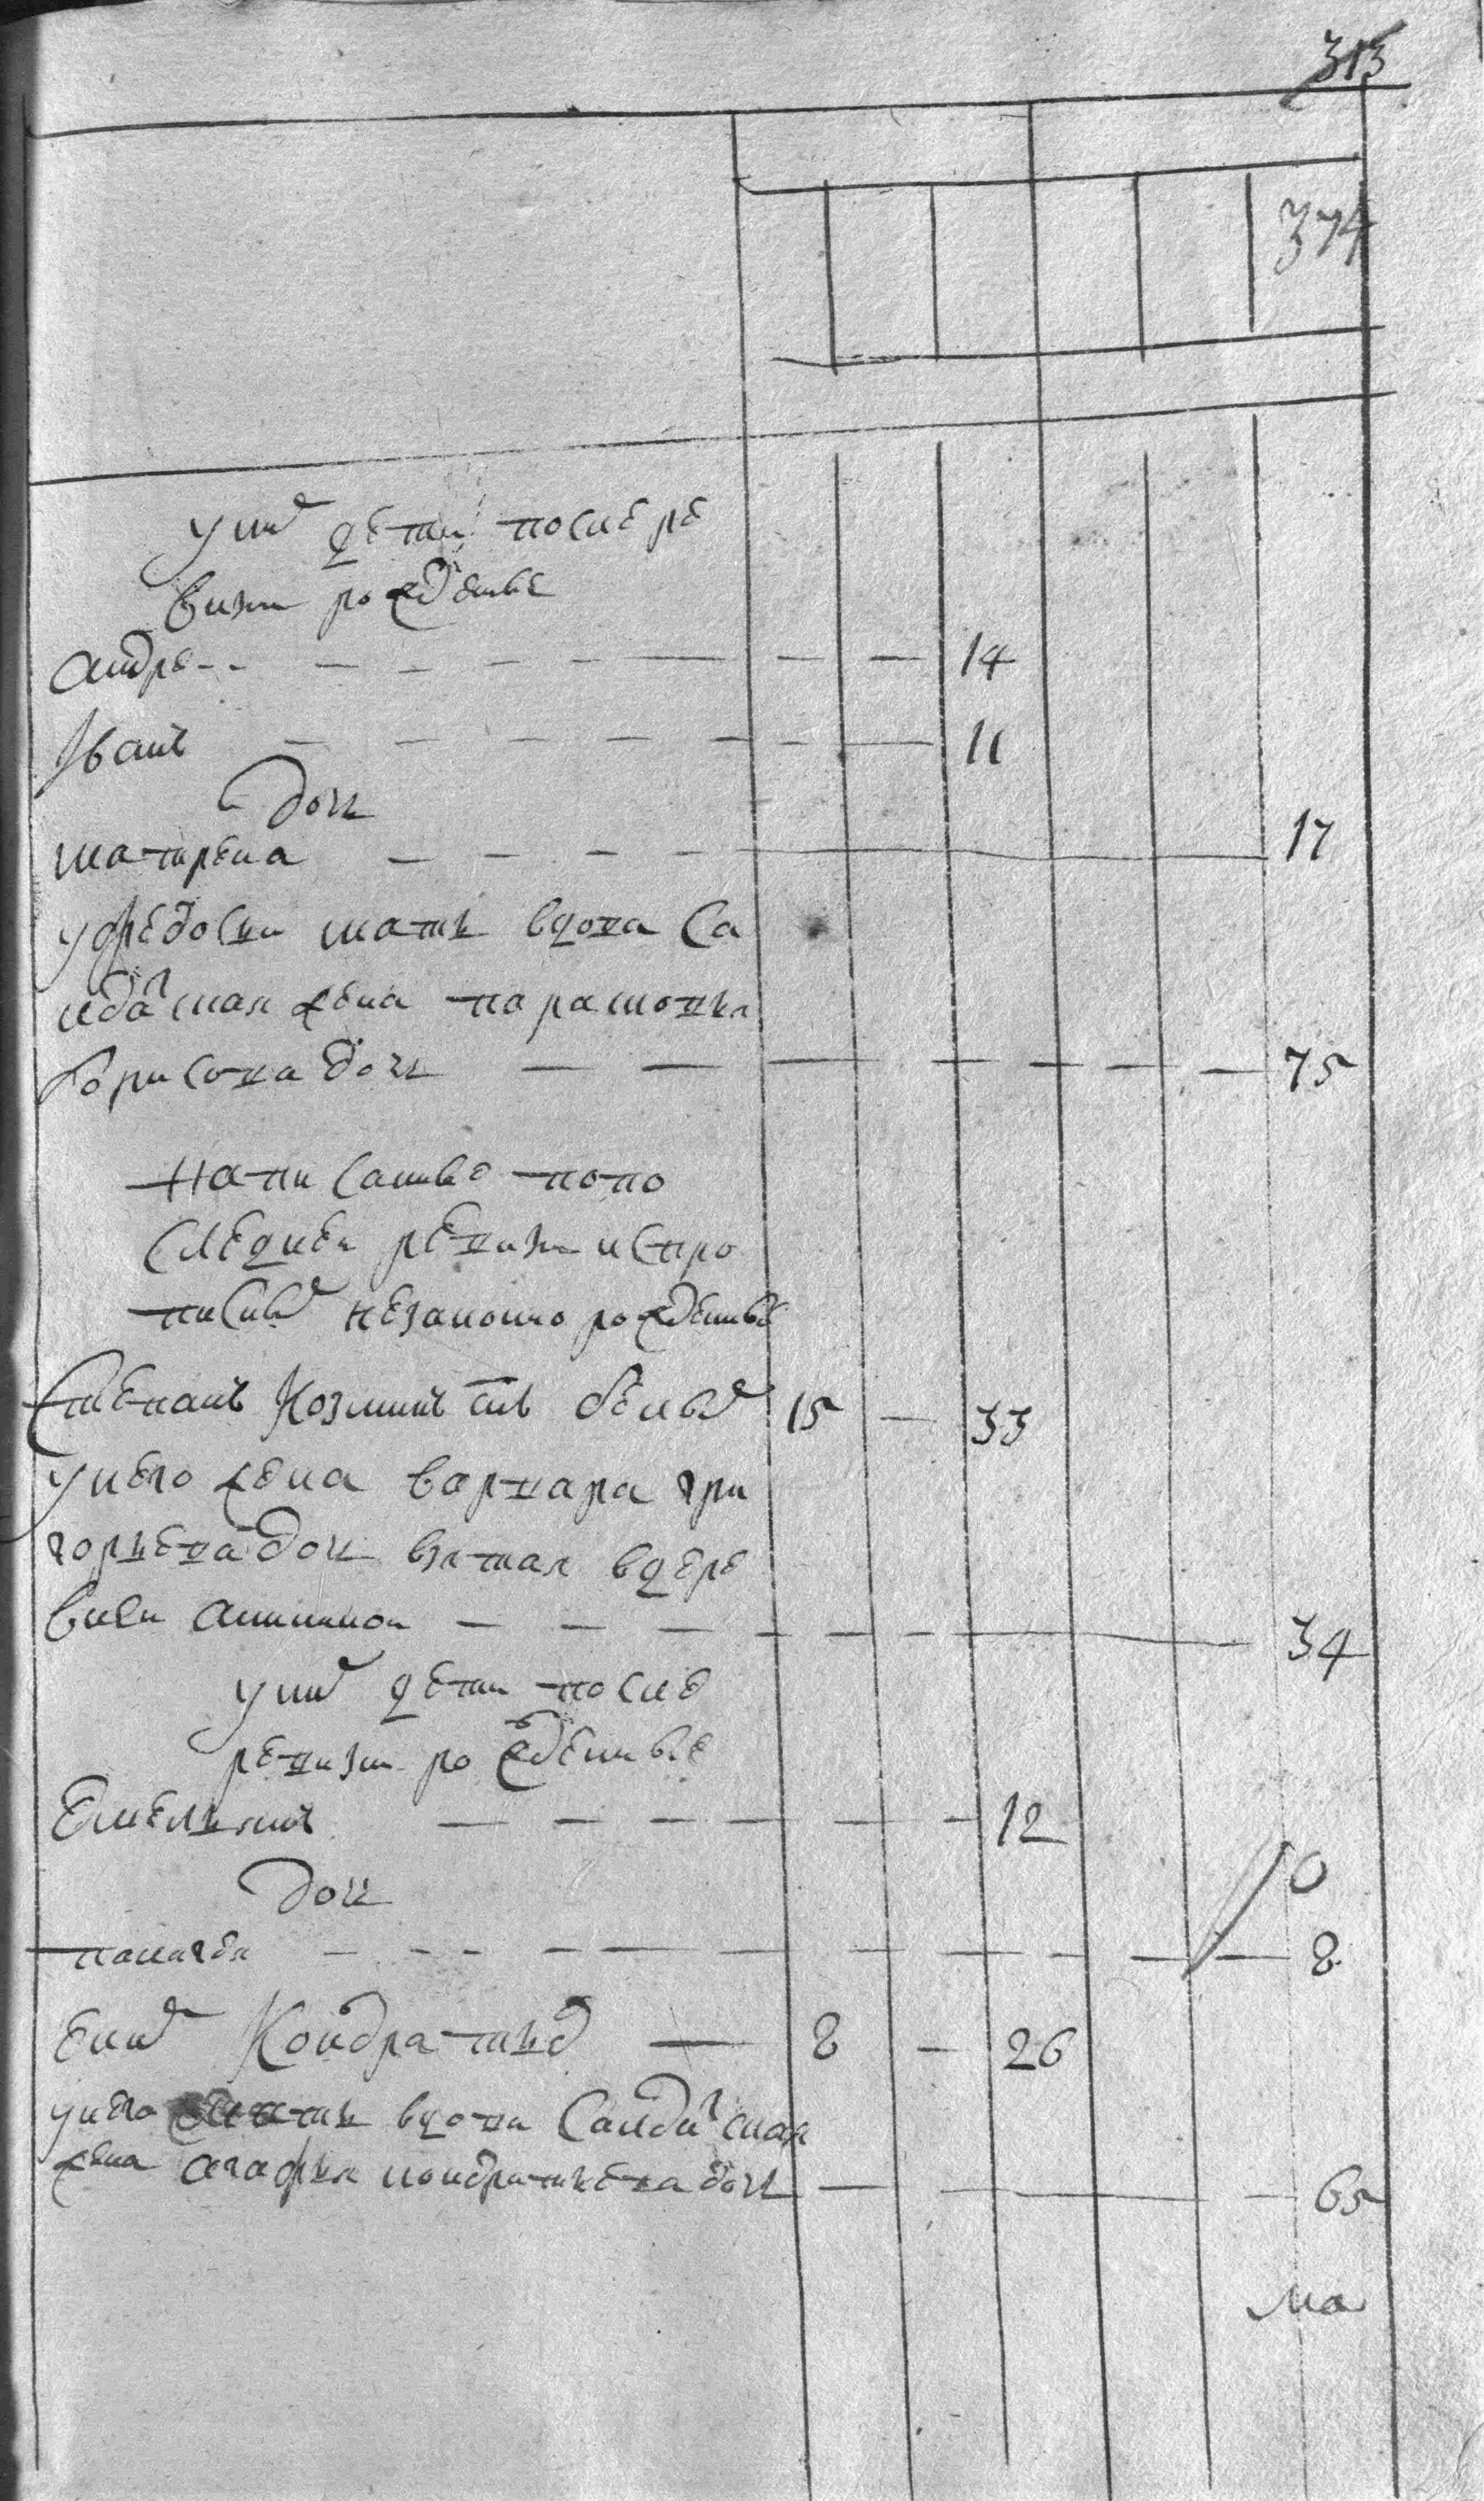 313
374
у них дети после ре
визи рожденые
Андре - - 14
Иванъ 11
дочь
матрена 17
у федоски мать вдова са
лдатская жена парамонья
борисова дочь 75
написаные по по
следней ревизи и спро
писных незаконно рожденые
Степанъ Козминъ снъ белых 15 33
у него жена варвара гри
горьева дочь взятая в дере
вни
34
у них дети после
ревизи рожденые
Емельянъ 12
дочь
палагея 8
0
Кондратьев 8 26
у него мать вдова Салдатская
жена агафья кондратьева дочь 65